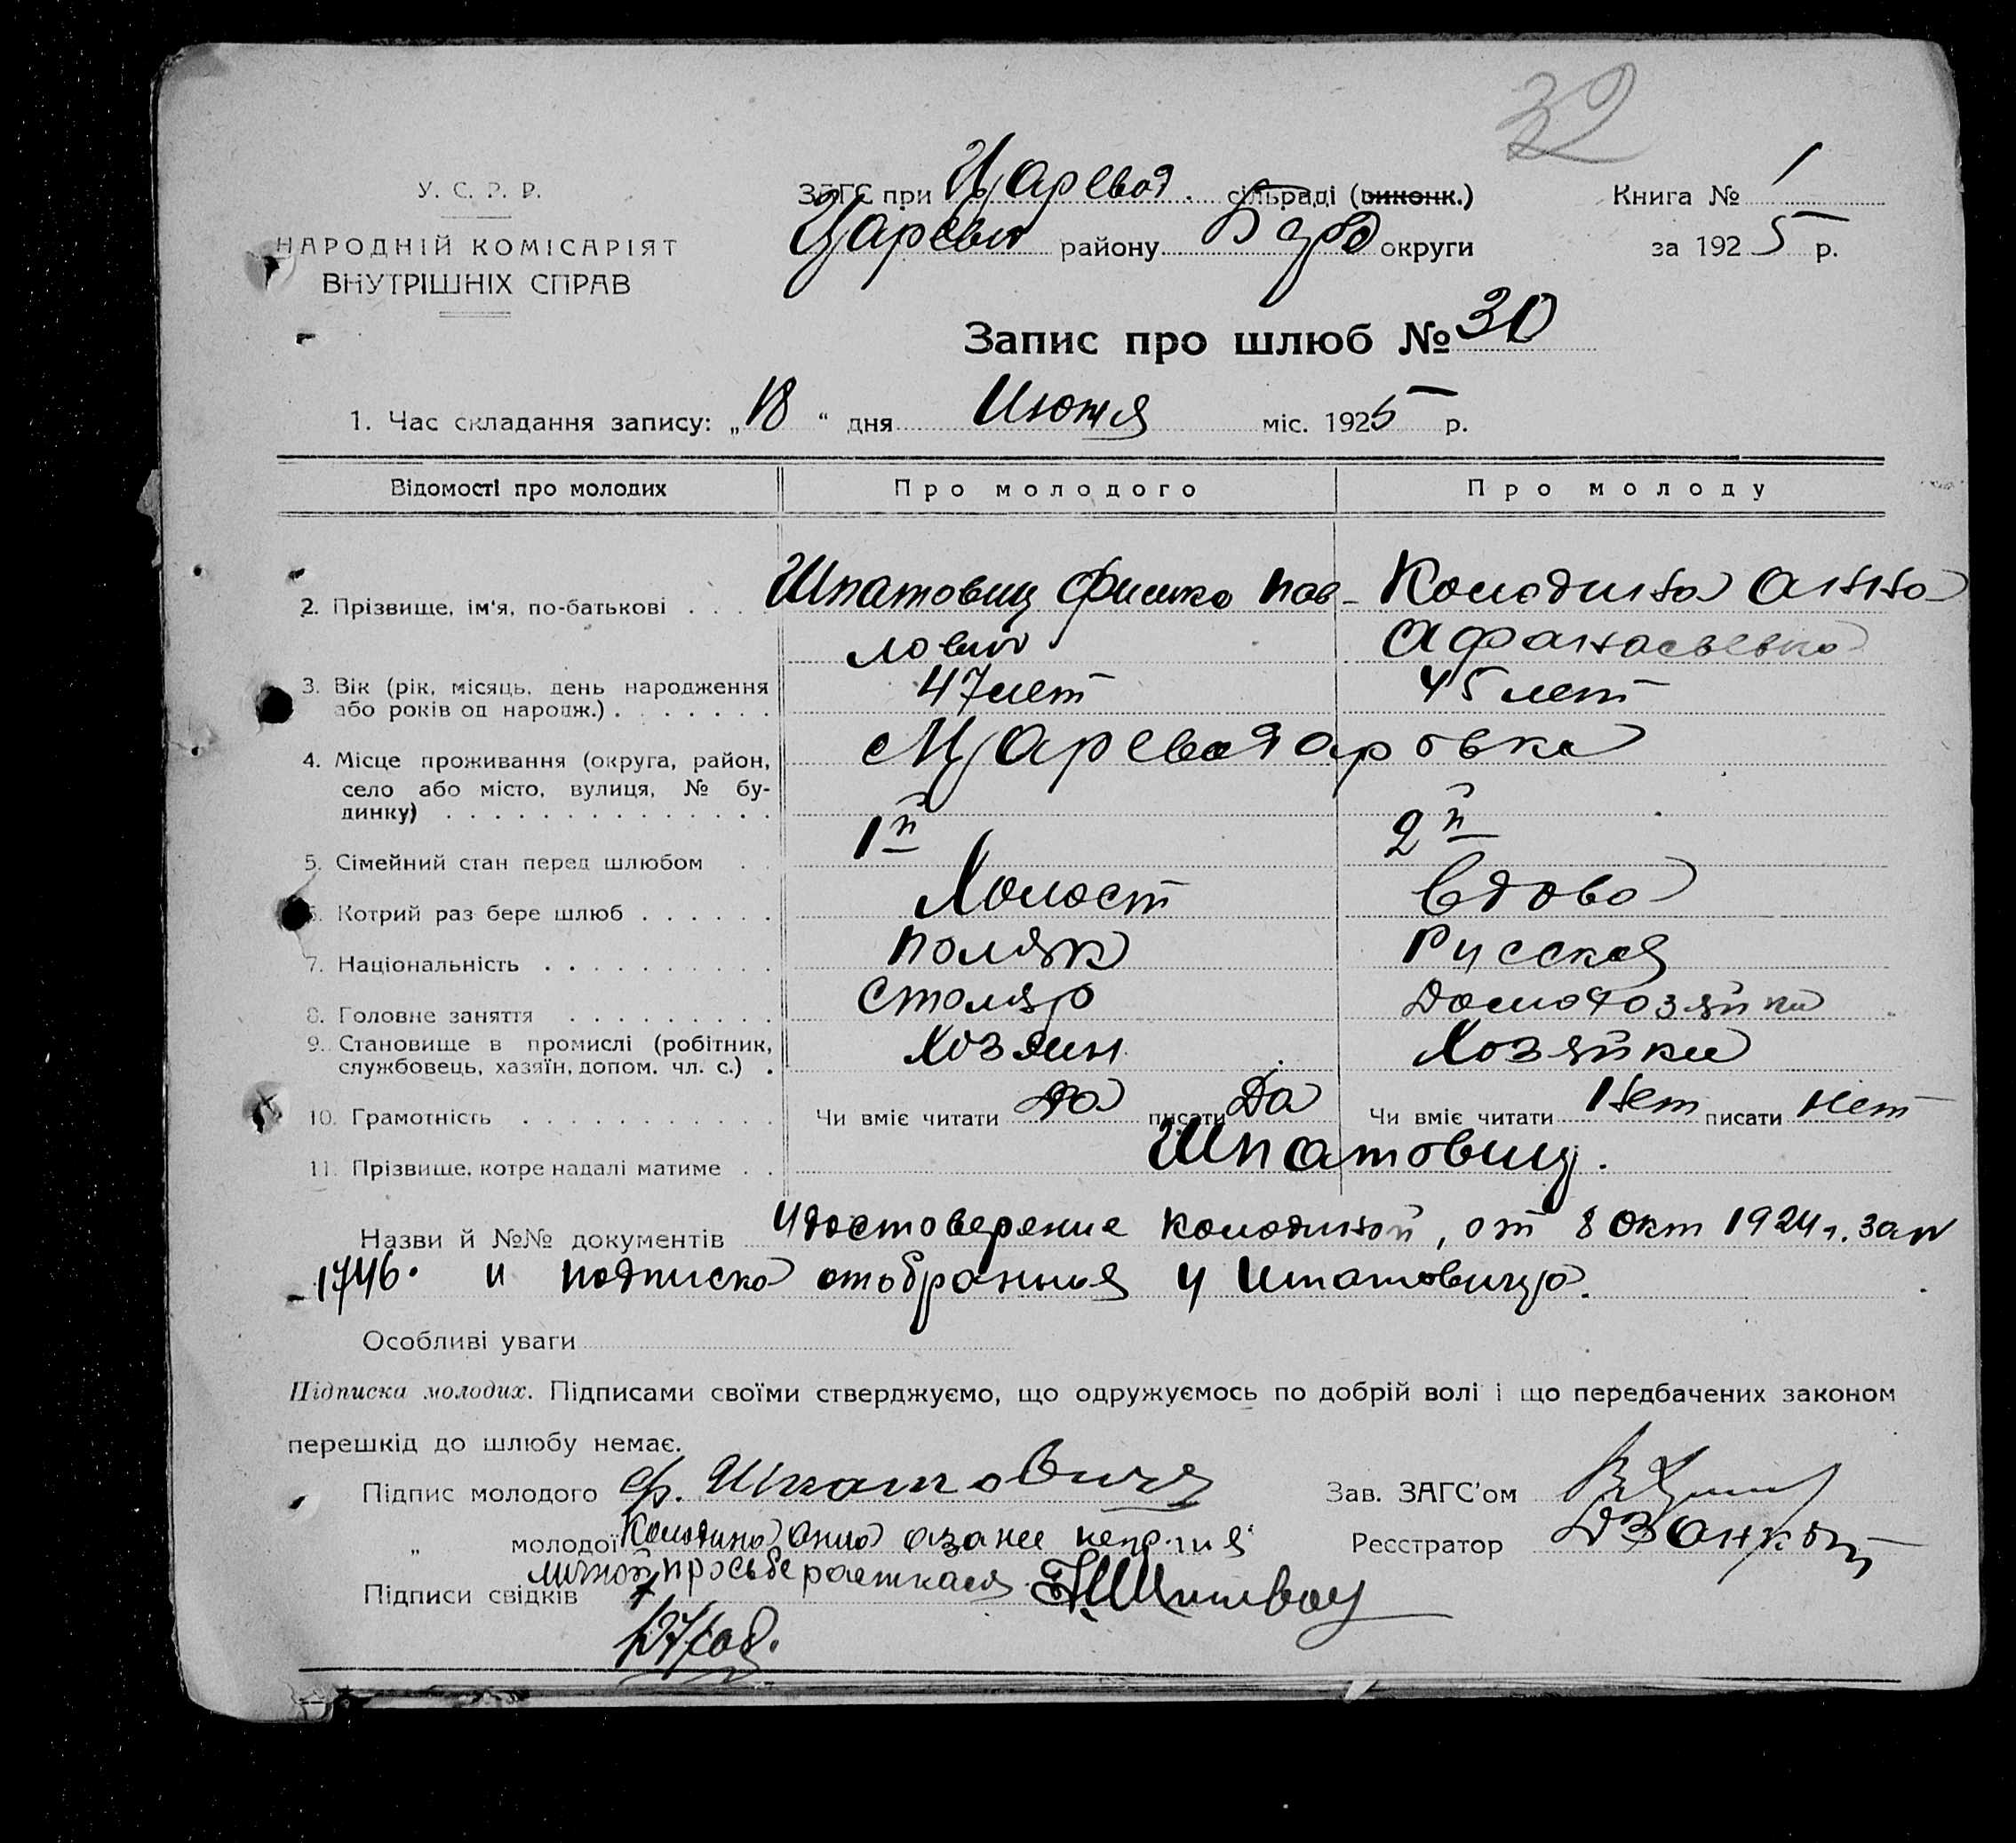 32
У. С. Р. Р.
НАРОДНІЙ КОМІСАРІЯТ
ВНУТРІШНІХ СПРАВ
ЗАГС при Царевод. сільраді (виконк.)
Книга № 1
району округи
за 1925 р.
Запис про шлюб № 30
1. Час складання запису: „18“ дня Июня міс. 1925 р.
Відомості про молодих Про молодого Про молоду
2. Прізвище, ім'я, по-батькові . . . Шпатовиц Фишко Пав- Колодина Анна
лович Афанасьевна
3. Вік (рік, місяць, день народження 47 лет 45 лет
або років од народж.) . . . . . . .
4. Місце проживання (округа, район,
село або місто, вулиця, № бу-
динку) . . . . . . . . . . . . . .
1й 2й
5. Сімейний стан перед шлюбом . .
6. Котрий раз бере шлюб . . . . . . Холост Вдова
7. Національність . . . . . . . . . . поляк Русская
8. Головне заняття . . . . . . . . . столяр Домохозяйка
9. Становище в промислі (робітник, Хозяин Хозяйка
службовець, хазяїн, допом. чл. с.) .
10. Грамотність . . . . . . . . . . . Чи вміє читати да писати Да Чи вміє читати Нет писати нет
11. Прізвище, котре надалі матиме . . Шпатовиц.
Назви й №№ документів Удостоверение Колодиной, от 8 Окт 1924 г. за №
1746. и подписка отобранная у Шпатовица.
Особливі уваги
Підписка молодих. Підписами своїми стверджуємо, що одружуємось по добрій волі і що передбачених законом
перешкід до шлюбу немає.
Підпис молодого Ф. Шпатовиц Зав. ЗАГС'ом
„ молодої Колодина Анна а за нее негр. ия Реєстратор
личной просьбе
Підписи свідків